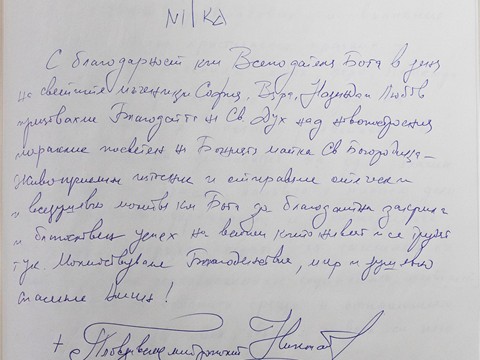 NI KA
С благодарност към Всеподателя Бога в деня
на светите мъченици София, Вяра, Надежда и Любов
призоваваме Благодатта на Св. Дух над новопостроения
параклис посветен на Божията майка Св. Богородица –
Живоприемни източник и отправяме отчески
и всецърковни молитви към Бога да благодатна закрила
и благословен успех на всички които живеят и се трудят
тук. Молитствуваме Благоденствие, мир и душевно
спасение Амин!
+